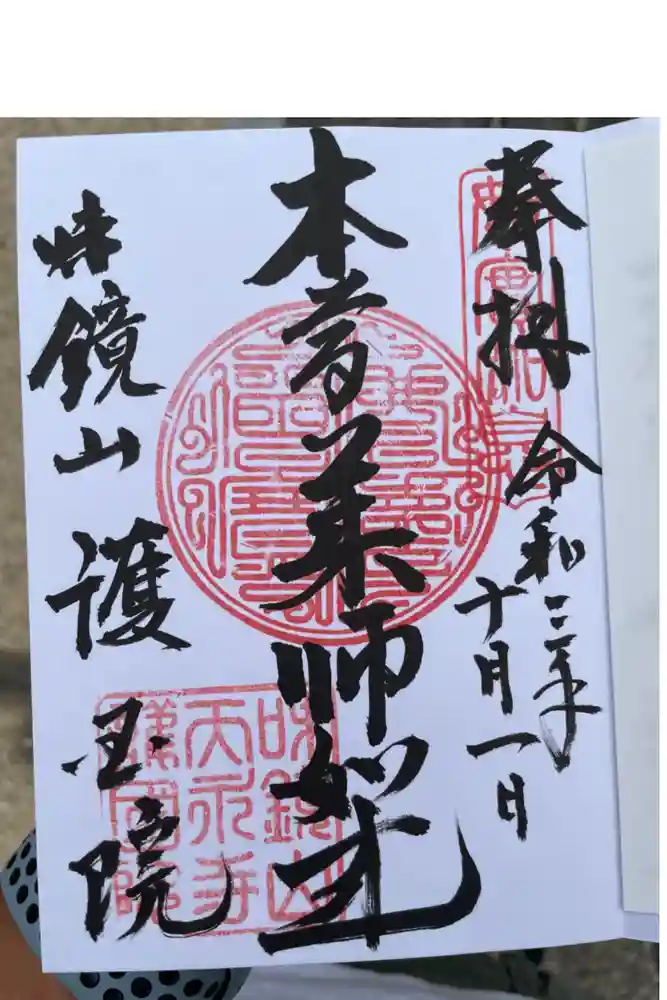 奉拝
令和三年
十月一日
本尊薬師如来
味鏡山
護国院
味鏡山
天永寺
護国院